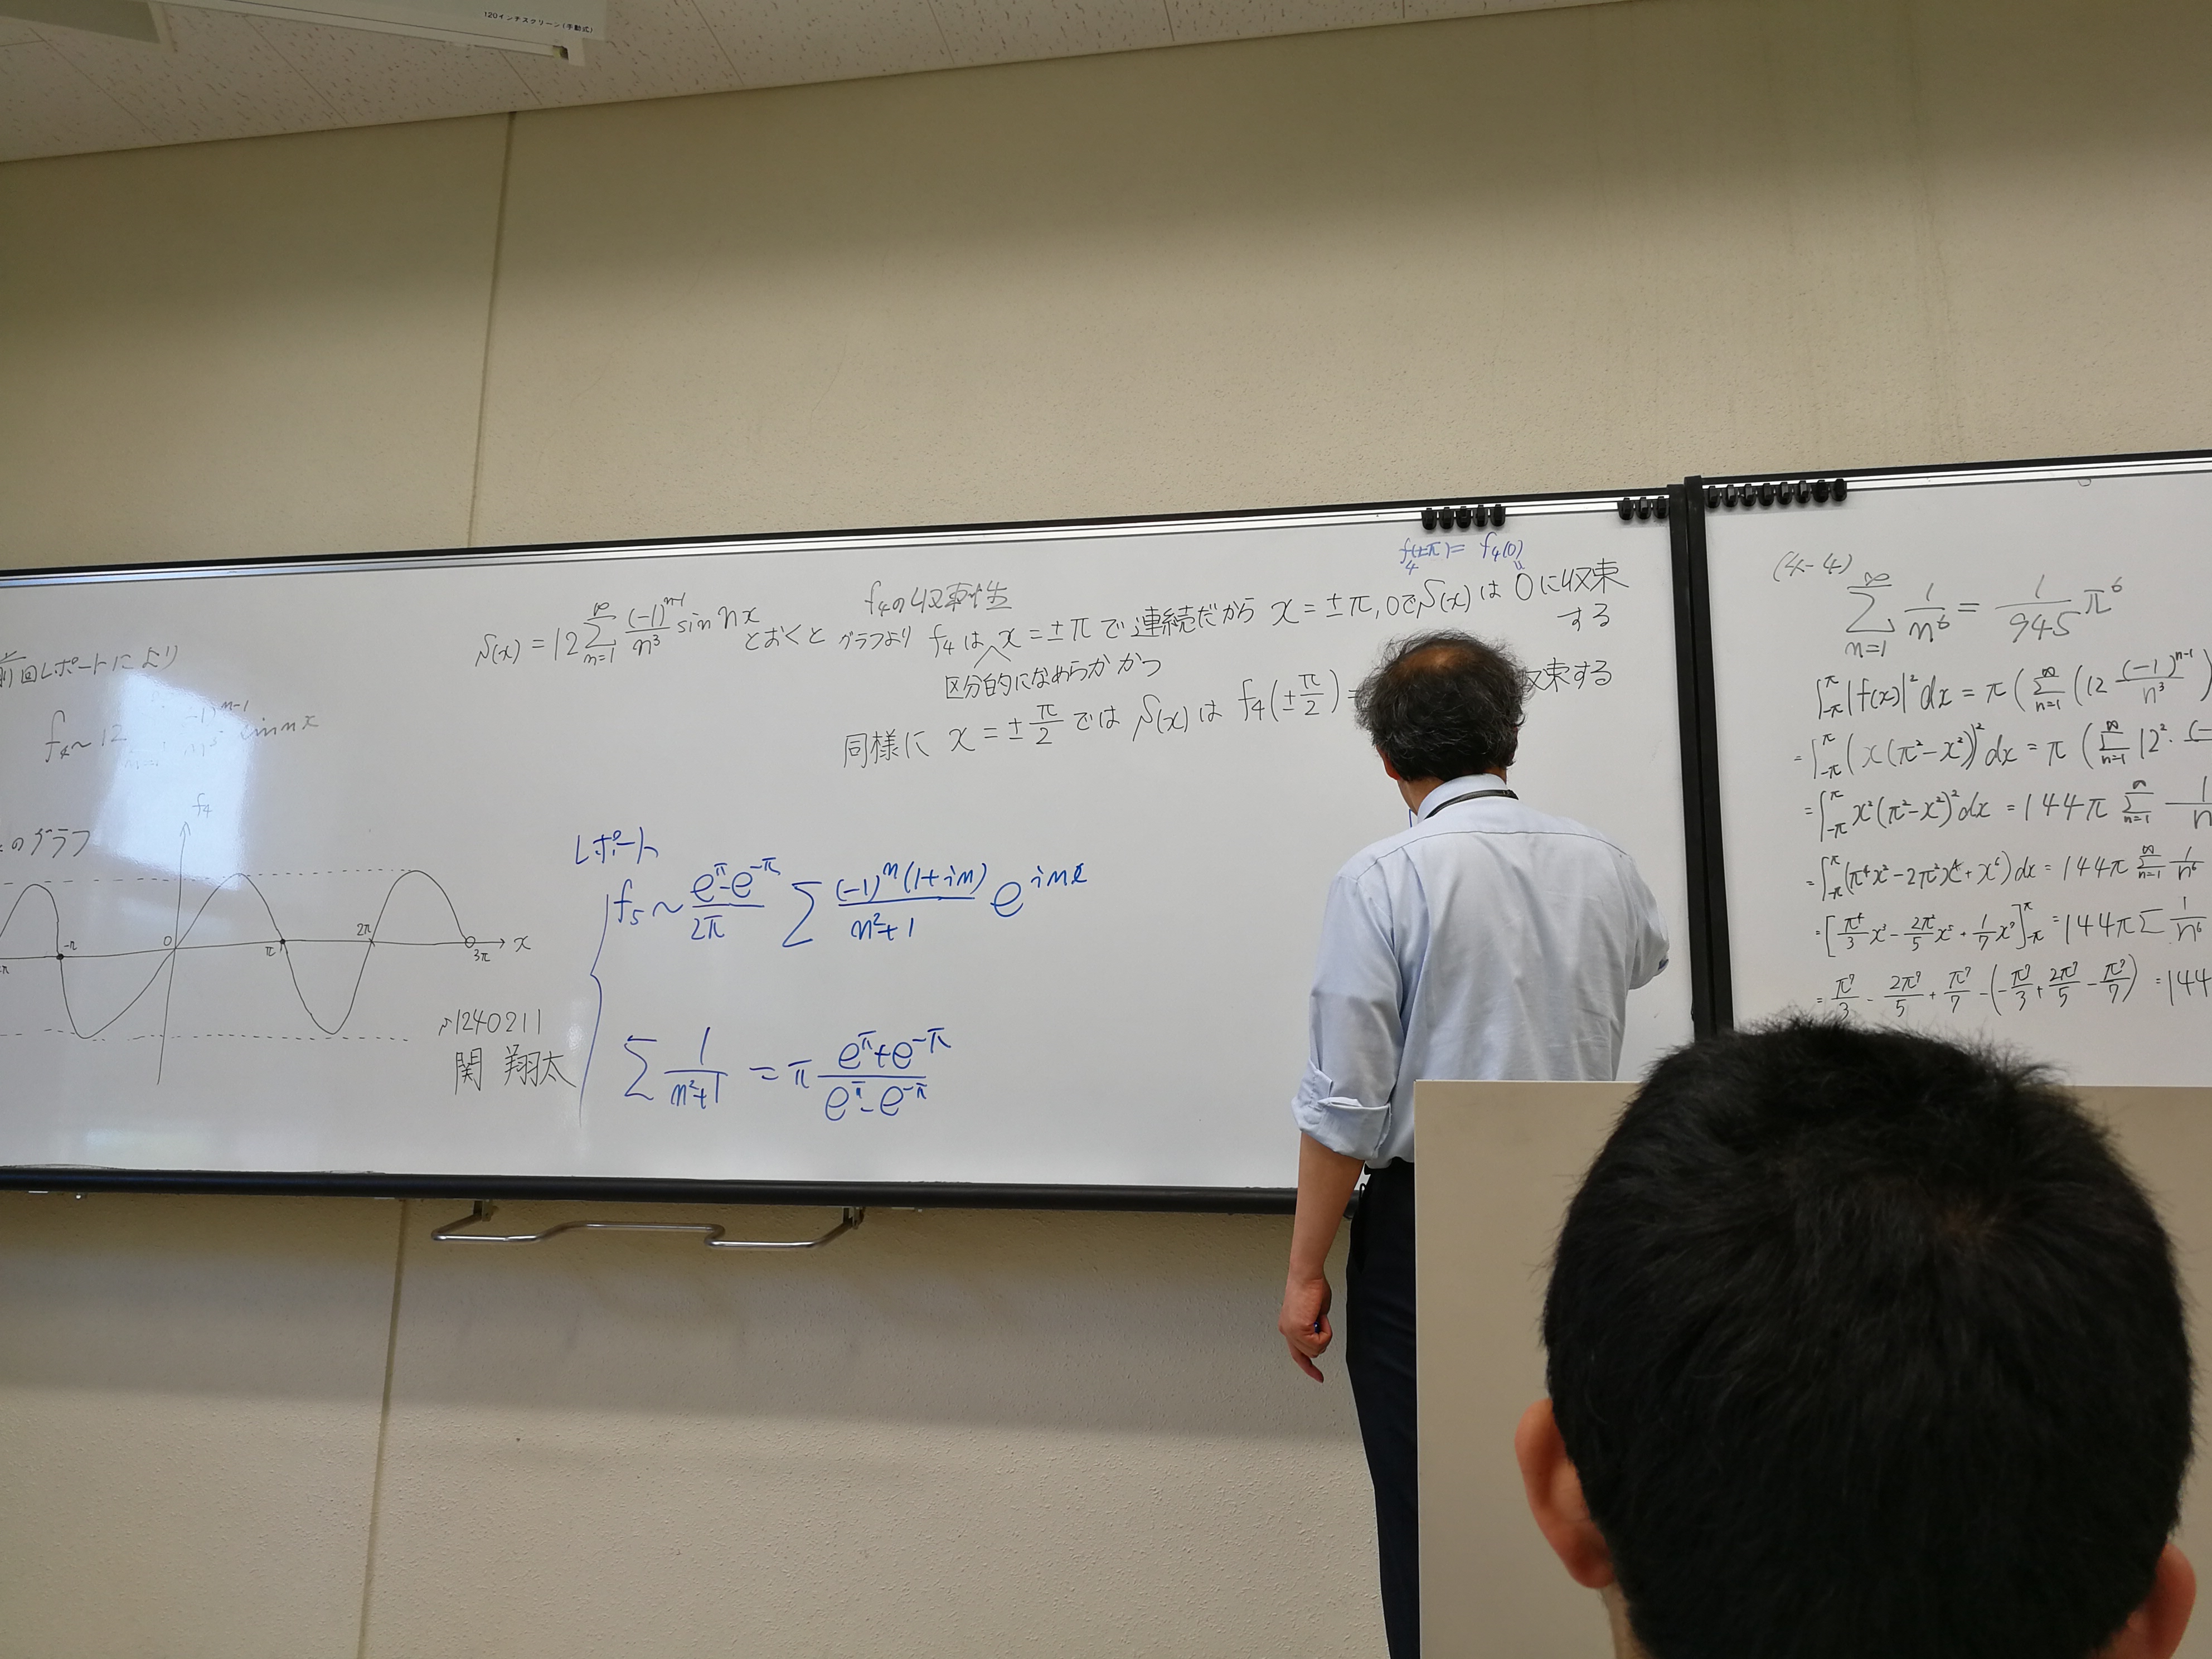 120インチスクリーン(手動式)
前回レポートにより
f₄ ~ 12 (-1)^{n-1} sin nx
のグラフ
f₄
-π 0 π 2π 3π x
1240211
関 翔太
f₄の収束性
S(x) = 12 Σ_{n=1}^{∞} (-1)^{n-1}/n³ sin nx とおくと グラフより f₄は x = ±π で連続だから x = ±π, 0でS(x)は 0に収束
する
区分的になめらか かつ
f₄(±π) = f₄(0)
同様に x = ±π/2 では S(x)は f₄(±π/2) = 収束する
レポート
f₅ ~ (e^π - e^{-π})/2π Σ (-1)^n (1+in)/(n²+1) e^{inx}
Σ 1/(n²+1) = π (e^π + e^{-π})/(e^π - e^{-π})
(4-4)
Σ_{n=1}^{∞} 1/n⁶ = 1/945 π⁶
∫_{-π}^{π} |f(x)|² dx = π (Σ_{n=1}^{∞} (12 (-1)^{n-1}/n³)
= ∫_{-π}^{π} (x(π²-x²))² dx = π (Σ_{n=1}^{∞} 12² ·
= ∫_{-π}^{π} x²(π²-x²)² dx = 144π Σ_{n=1} 1/n
= ∫_{-π}^{π} (π⁴x² - 2π²x⁴ + x⁶) dx = 144π Σ_{n=1}^{∞} 1/n⁶
= [π⁴/3 x³ - 2π²/5 x⁵ + 1/7 x⁷]_{-π}^{π} = 144π Σ 1/n⁶
= π⁷/3 - 2π⁷/5 + π⁷/7 - (-π⁷/3 + 2π⁷/5 - π⁷/7) = 144